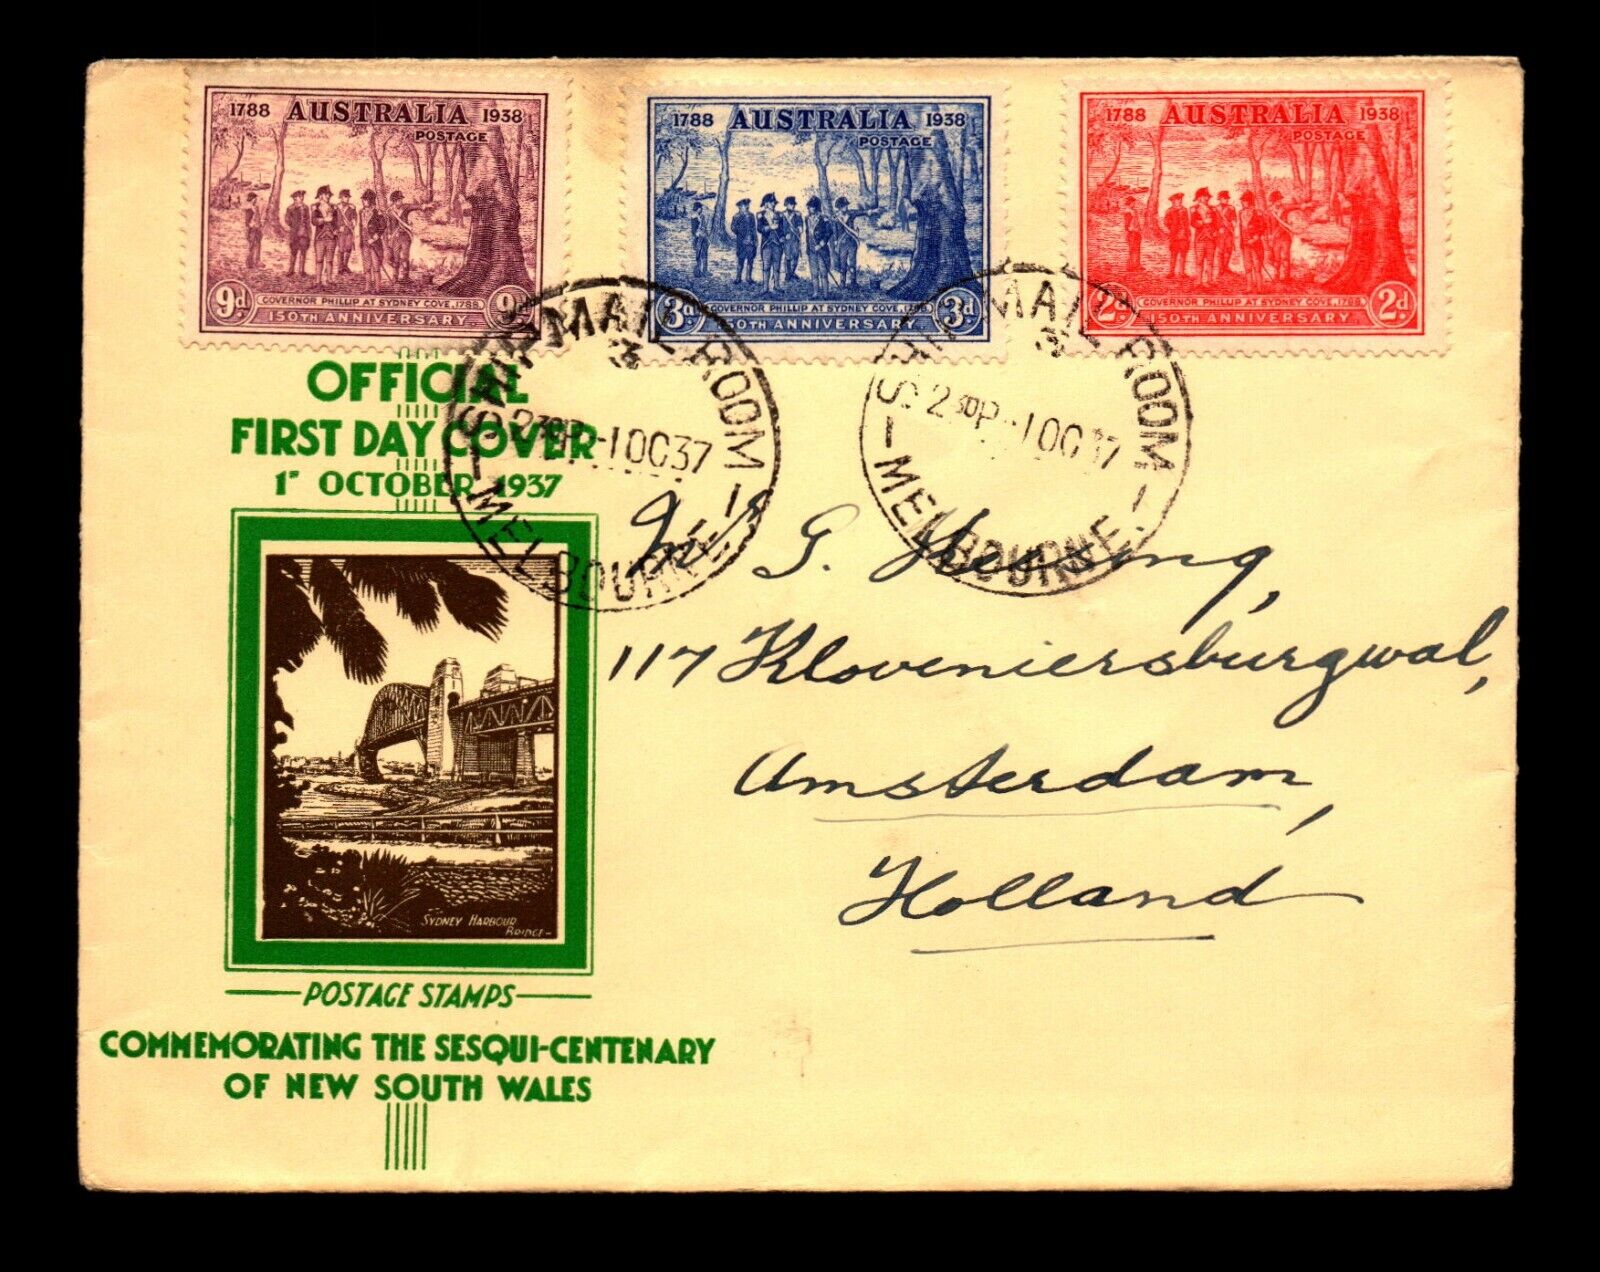 1788 AUSTRALIA 1938
POSTAGE
9d GOVERNOR PHILLIP AT SYDNEY COVE, 1788. 9d
150TH ANNIVERSARY.
1788 AUSTRALIA 1938
POSTAGE
3d GOVERNOR PHILLIP AT SYDNEY COVE, 1788 3d
150TH ANNIVERSARY.
1788 AUSTRALIA 1938
POSTAGE
2d GOVERNOR PHILLIP AT SYDNEY COVE, 1788 2d
150TH ANNIVERSARY.
SHIP MAIL ROOM
3
2 30P-1OC37
MELBOURNE
SHIP MAIL ROOM
3
2 30P-1OC37
MELBOURNE
OFFICIAL
FIRST DAY COVER
1ST OCTOBER 1937
SYDNEY HARBOUR
BRIDGE
POSTAGE STAMPS
COMMEMORATING THE SESQUI-CENTENARY
OF NEW SOUTH WALES
G.
117 Kloveniersburgwal,
Amsterdam,
Holland